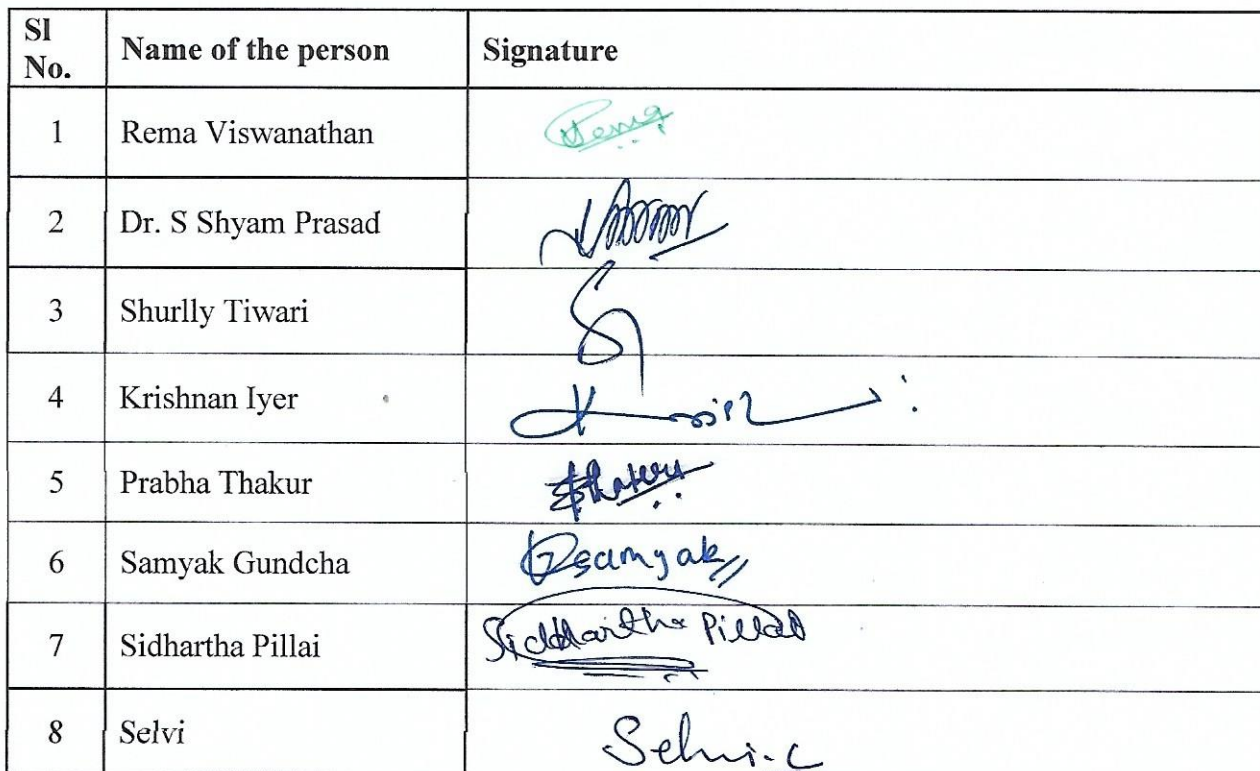 Sl No. Name of the person Signature
1 Rema Viswanathan Rema
2 Dr. S Shyam Prasad
3 Shurlly Tiwari
4 Krishnan Iyer
5 Prabha Thakur
6 Samyak Gundcha Samyak
7 Sidhartha Pillai Siddhartha Pillai
8 Selvi Selvi.C